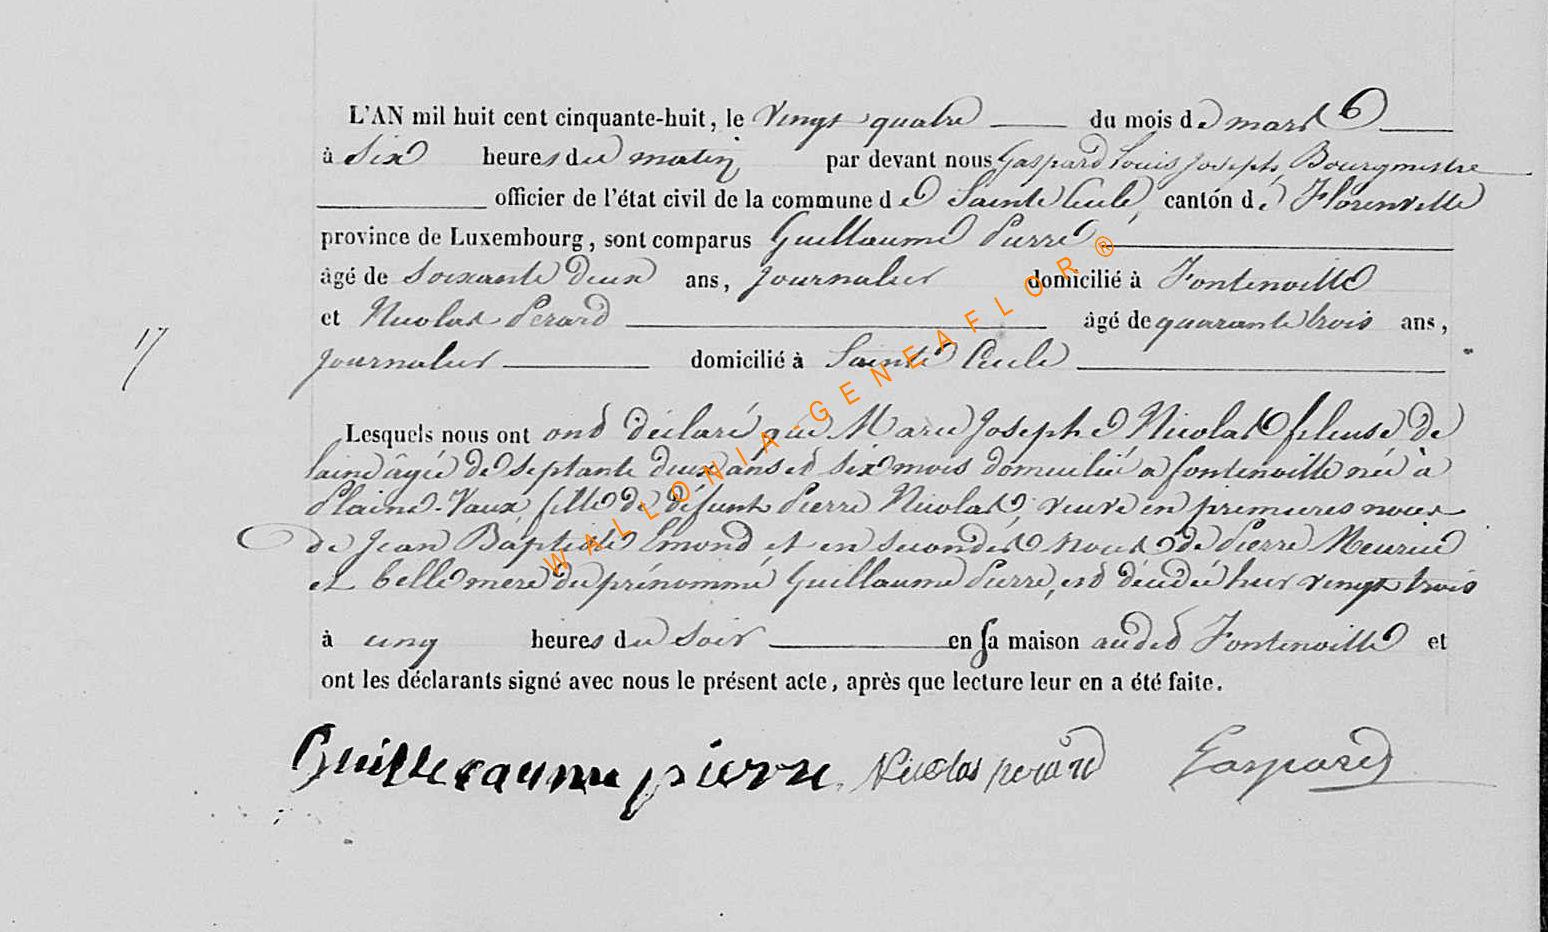 L'AN mil huit cent cinquante-huit, le vingt quatre du mois de mars
à six heures du matin par devant nous Gaspard Louis Joseph, Bourgmestre
officier de l'état civil de la commune de Sainte Cecile, cantón de Florenville
province de Luxembourg, sont comparus Guillaume Pierre
âgé de soixante deux ans, journalier domicilié à Fontenoille
et Nicolas Perard âgé de quarante trois ans,
17
journalier domicilié à Sainte Cecile
Lesquels nous ont ont déclaré que Marie Josephe Nicolas fileuse de
laine âgée de septante deux ans et six mois domiciliée a fontenoille née à
Plaine-Vaux, fille de défunt Pierre Nicolas, veuve en premieres noces
de Jean Baptiste Emond et en secondes noces de Pierre Meurice
et belle mere du prénommé Guillaume Pierre, est décédée hier vingt trois
à cinq heures du soir en sa maison audit Fontenoille et
ont les déclarants signé avec nous le présent acte, après que lecture leur en a été faite.
Guillaume pierre Nicolas perard Gaspard
WALLONIA-GENEAFLOR®